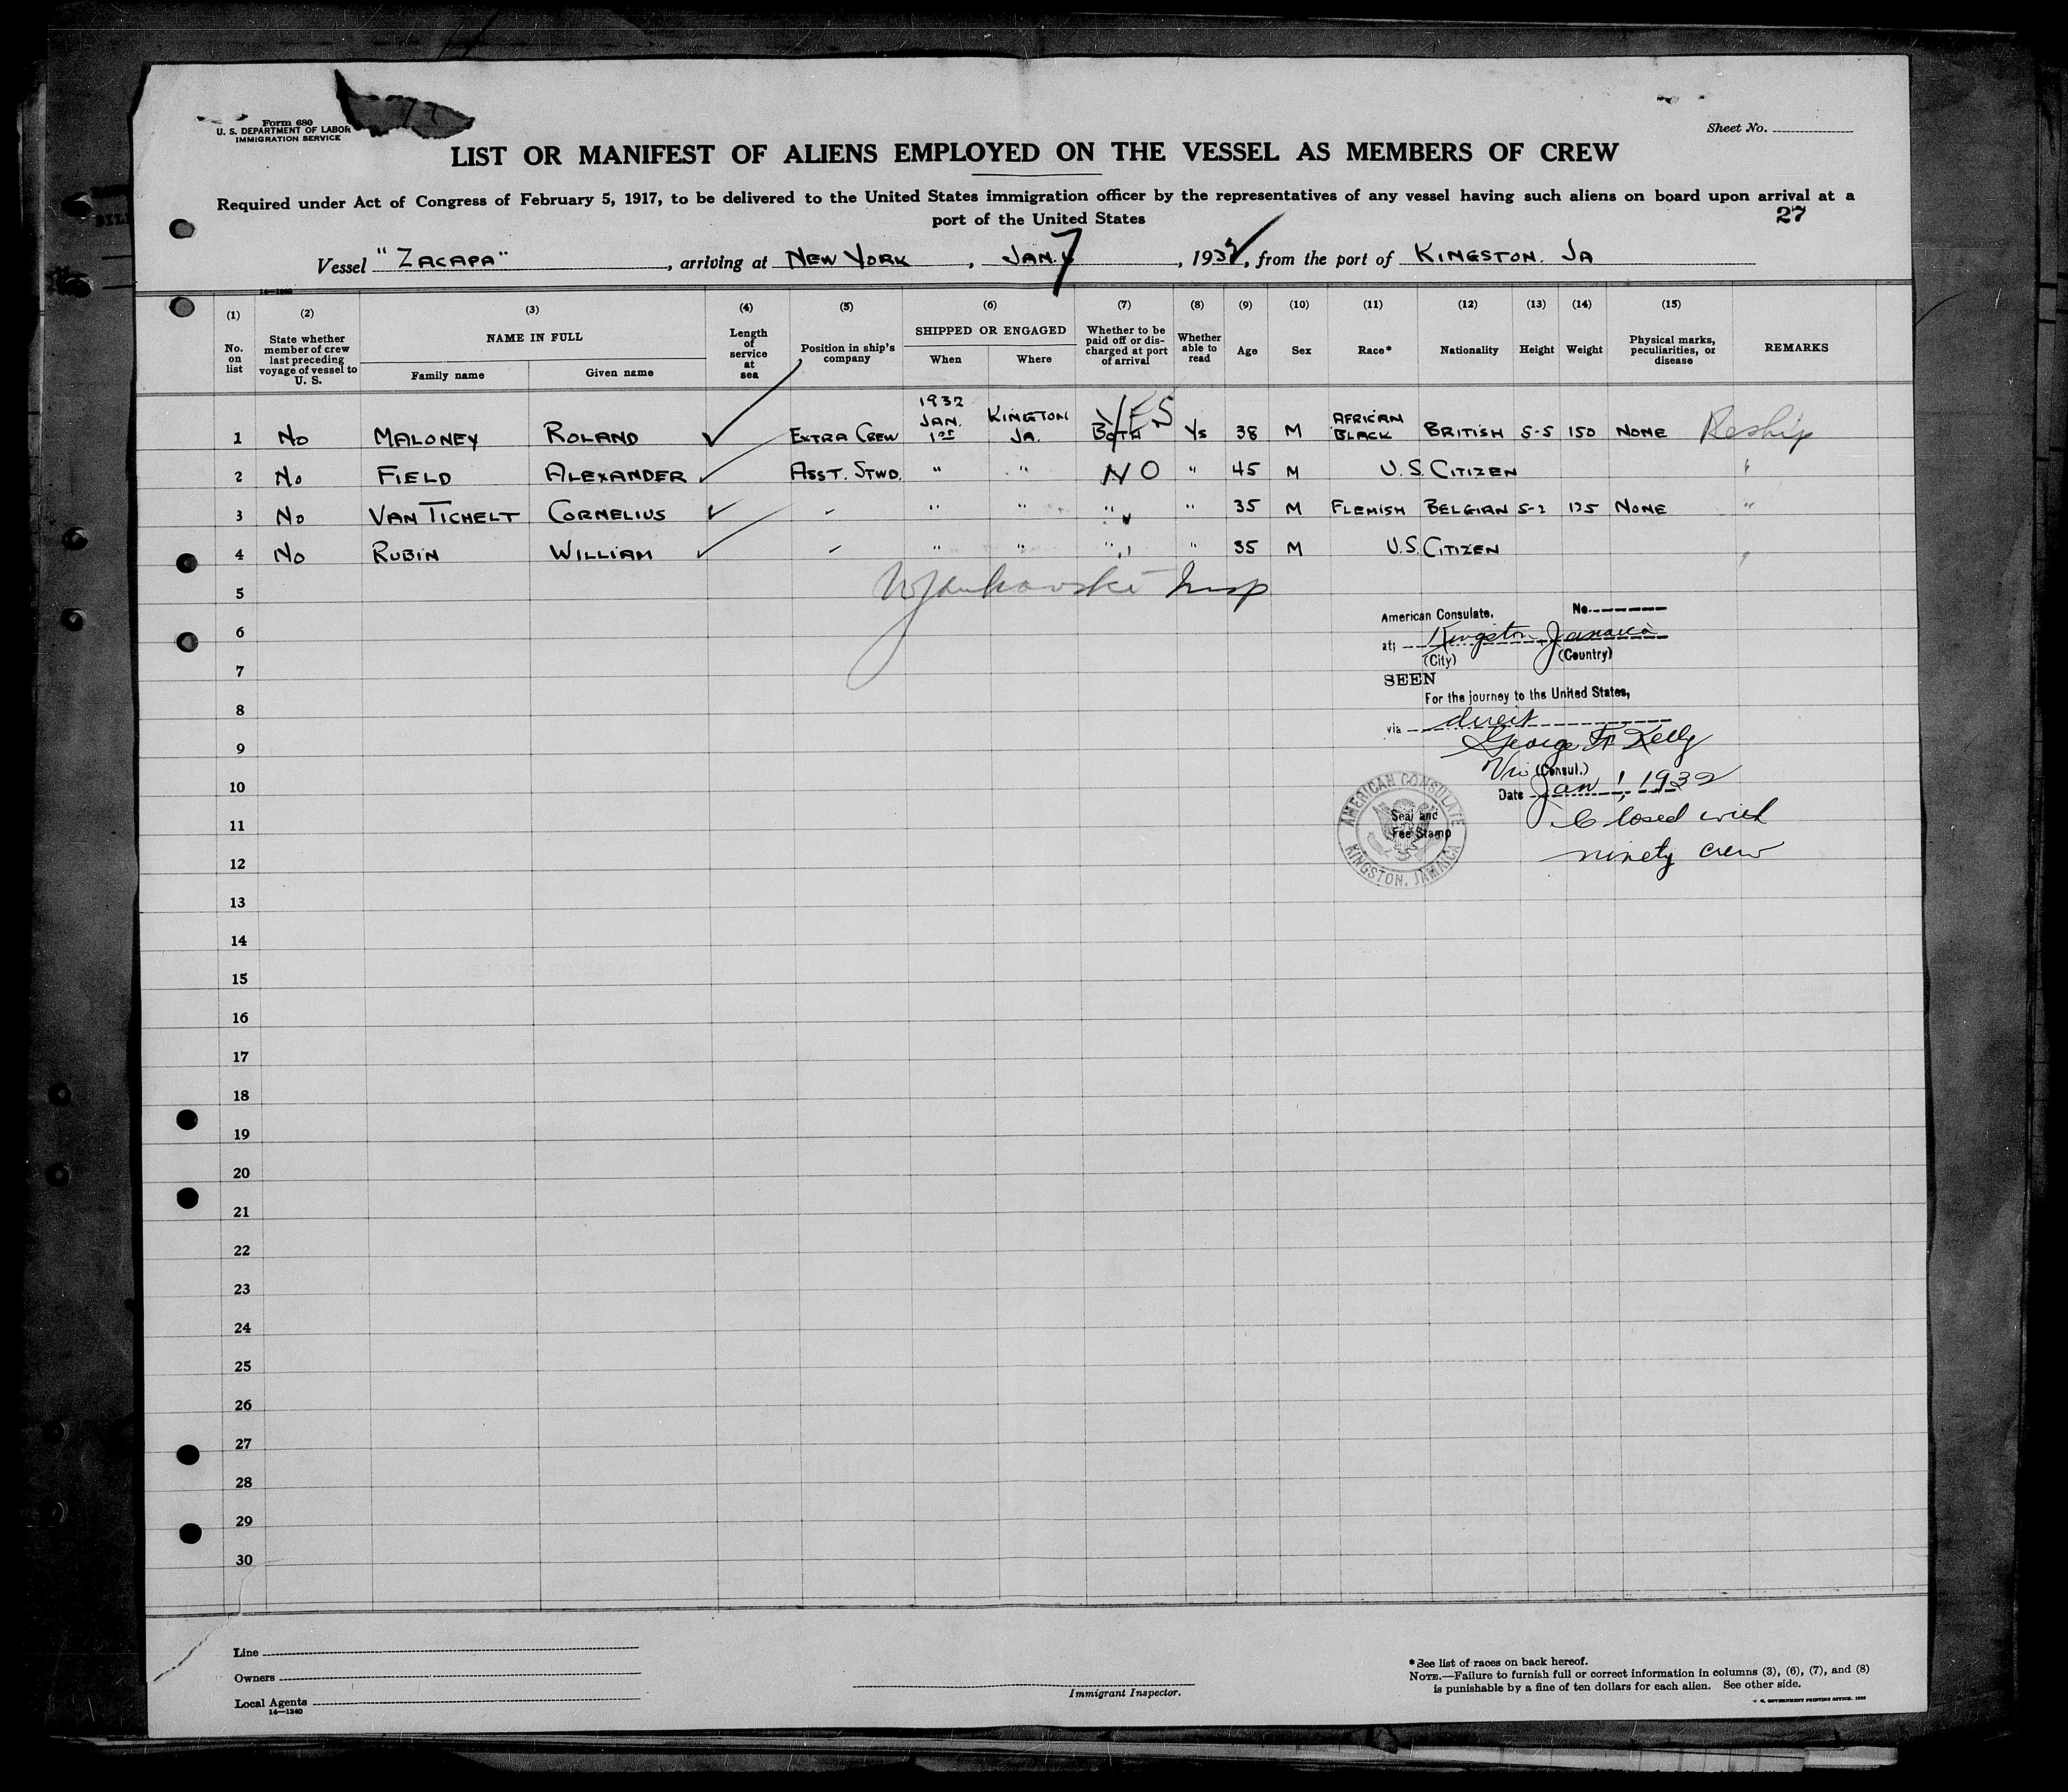 Form 680
U. S. DEPARTMENT OF LABOR
IMMIGRATION SERVICE
Sheet No.
LIST OR MANIFEST OF ALIENS EMPLOYED ON THE VESSEL AS MEMBERS OF CREW
Required under Act of Congress of February 5, 1917, to be delivered to the United States immigration officer by the representatives of any vessel having such aliens on board upon arrival at a
port of the United States
27
Vessel "ZACAPA", arriving at NEW YORK, JAN. 7, 1932, from the port of KINGSTON. JA
14—1240
(1) (2) (3) (4) (5) (6) (7) (8) (9) (10) (11) (12) (13) (14) (15)
No. on list
State whether member of crew last preceding voyage of vessel to U. S.
NAME IN FULL
Family name
Given name
Length of service at sea
Position in ship's company
SHIPPED OR ENGAGED
When
Where
Whether to be paid off or discharged at port of arrival
Whether able to read
Age
Sex
Race*
Nationality
Height
Weight
Physical marks, peculiarities, or disease
REMARKS
1 No MALONEY ROLAND EXTRA CREW 1932 JAN. 1ST KINGTON JA. BOTH YES Ys 38 M AFRICAN BLACK BRITISH 5-5 150 NONE Reship
2 No FIELD ALEXANDER ASST. STWD. " " NO " 45 M U.S. CITIZEN "
3 No VAN TICHELT CORNELIUS " " " " " 35 M FLEMISH BELGIAN 5-2 125 NONE "
4 No RUBIN WILLIAM " " " " " 35 M U.S. CITIZEN "
5
Insp
6
7
8
9
10
11
12
13
14
15
16
17
18
19
20
21
22
23
24
25
26
27
28
29
30
American Consulate, No.
at; Kingston Jamaica
(City) (Country)
SEEN
For the journey to the United States,
via direct
George F. Kelly
Vice (Consul.)
Date Jan 1, 1932
Closed with
ninety crew
AMERICAN CONSULATE
KINGSTON, JAMAICA
Seal and
Fee Stamp
Line
Owners
Local Agents
14—1240
Immigrant Inspector.
*See list of races on back hereof.
NOTE.—Failure to furnish full or correct information in columns (3), (6), (7), and (8)
is punishable by a fine of ten dollars for each alien. See other side.
GOVERNMENT PRINTING OFFICE